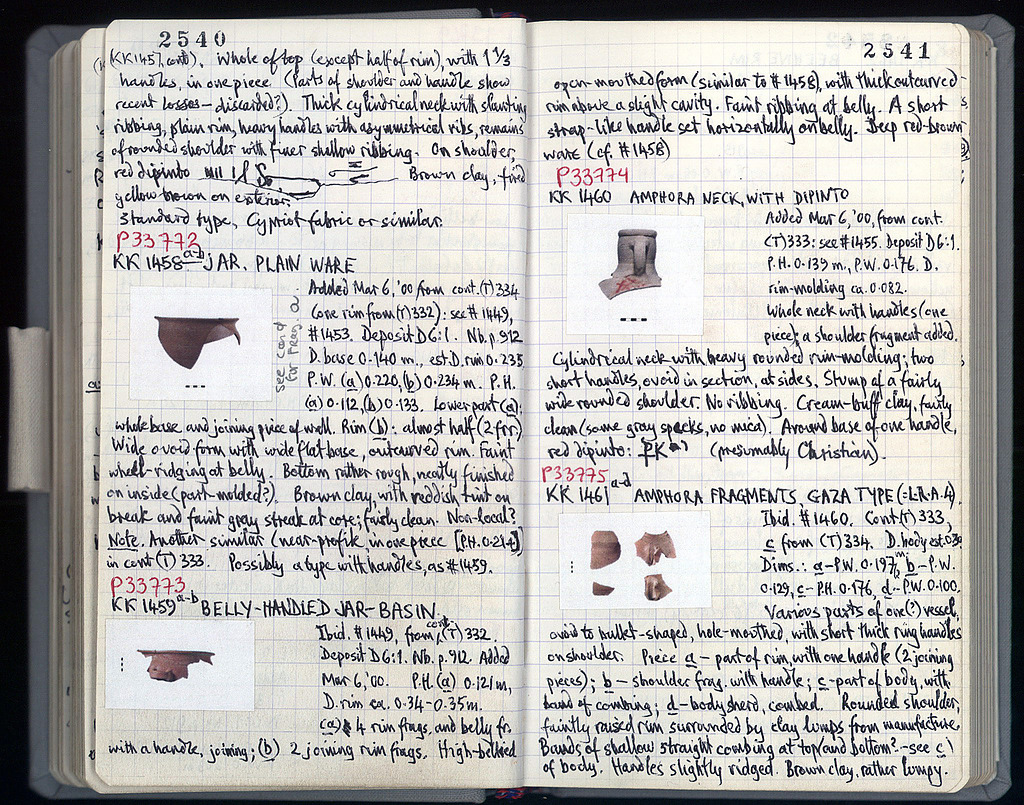 2540
(KK1457, contd). Whole of top (except half of rim), with 1 1/3
handles, in one piece. (Parts of shoulder and handle show
recent losses – discarded?). Thick cylindrical neck with slanting
ribbing, plain rim, heavy handles with asymmetrical ribs, remains
of rounded shoulder with finer shallow ribbing. On shoulder,
red dipinto Brown clay, fired
yellow brown on exterior.
Standard type, Cypriot fabric or similar.
P33772
KK 1458 a-b JAR, PLAIN WARE
Added Mar 6, '00 from cont. (T) 334
(one rim from (T) 332): see # 1449,
#1453. Deposit D6:1. Nb. p. 912
D. base 0.140 m., est D. rim 0.235
P.W. (a) 0.220, (b) 0.234 m. P.H.
(a) 0.112, (b) 0.133. Lower part (a):
see card
for Frag. a
whole base and joining piece of wall. Rim (b): almost half (2 frr.)
Wide ovoid form with wide flat base, outcurved rim. Faint
wheel-ridging at belly. Bottom rather rough, neatly finished
on inside (part-molded?). Brown clay, with reddish tint on
break and faint gray streak at core; fairly clean. Non-local?
Note. Another similar (near-profile, in one piece [P.H. 0.214])
in cont (T) 333. Possibly a type with handles, as #1459.
P33773
KK 1459 a-b BELLY-HANDLED JAR-BASIN
Ibid. # 1449, from cont (T) 332.
Deposit D6:1. Nb. p. 912. Added
Mar 6, '00. P.H. (a) 0.121 m,
D. rim ca. 0.34–0.35m.
(a) 4 rim frags, and belly fr.
with a handle, joining; (b) 2 joining rim frags. High-bellied
2541
open-mouthed form (similar to #1458), with thick outcurved
rim above a slight cavity. Faint ribbing at belly. A short
strap-like handle set horizontally on belly. Deep red-brown
ware (cf. #1458)
P33774
KK 1460 AMPHORA NECK, WITH DIPINTO
Added Mar 6, '00, from cont.
(T) 333: see #1455. Deposit D6:1.
P.H. 0.139 m., P.W. 0.176. D.
rim-molding ca. 0.082.
Whole neck with handles (one
piece); a shoulder fragment added.
Cylindrical neck with heavy rounded rim-molding; two
short handles, ovoid in section, at sides. Stump of a fairly
wide rounded shoulder. No ribbing. Cream-buff clay, fairly
clean (some gray specks, no mica). Around base of one handle,
red dipinto: (presumably Christian).
P33775
KK 1461 a-d AMPHORA FRAGMENTS, GAZA TYPE (=L.R.A.4).
Ibid. #1460. Cont (T) 333,
c from (T) 334. D. body est.
Dims.: a – P.W. 0.197 m, b – P.W.
0.129, c – P.H. 0.176, d – P.W. 0.100.
Various parts of one (?) vessel,
ovoid to bullet-shaped, hole-mouthed, with short thick ring handles
on shoulder. Piece a – part of rim, with one handle (2 joining
pieces); b – shoulder frag. with handle; c – part of body, with
band of combing; d – body sherd, combed. Rounded shoulder,
faintly raised rim surrounded by clay lumps from manufacture.
Bands of shallow straight combing at top (and bottom? – see c)
of body. Handles slightly ridged. Brown clay, rather lumpy.